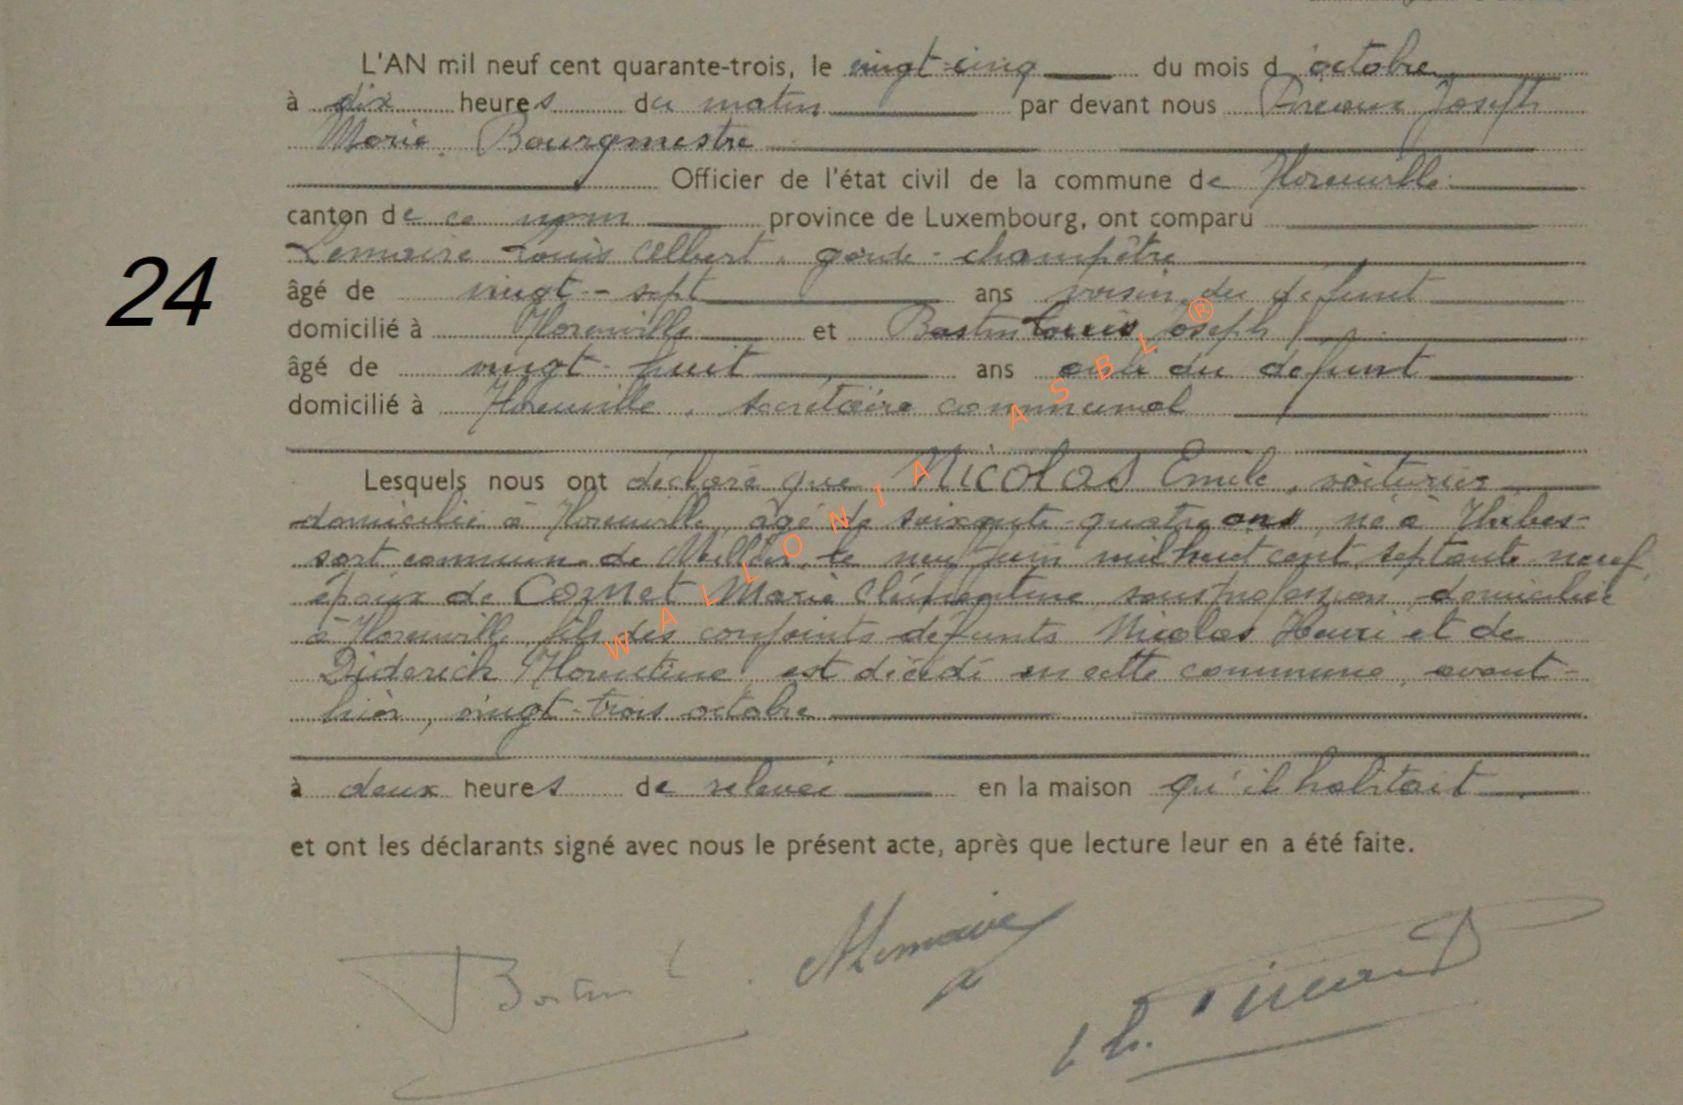 L'AN mil neuf cent quarante-trois, le vingt-cinq du mois d'octobre
à dix heures du matin par devant nous Joseph
Marie, Bourgmestre
Officier de l'état civil de la commune de Florenville
canton de ce nom province de Luxembourg, ont comparu
Lemaire Louis Albert, garde-champêtre
24
âgé de vingt-sept ans voisin du défunt
domicilié à Florenville et Bastin Louis Joseph
âgé de vingt-huit ans ami du défunt
domicilié à Florenville, secrétaire communal
Lesquels nous ont déclaré que Nicolas Emile, voiturier
domicilié à Florenville, âgé de soixante-quatre ans, né à Thibes-
sart commune de Mellier, le neuf juin mil huit cent septante neuf,
époux de Cornet Marie Clémentine, sans profession, domiciliée
à Florenville, fils des conjoints défunts Nicolas Henri et de
Diderich Florentine, est décédé en cette commune, avant-
hier, vingt-trois octobre
à deux heures de relevée en la maison qu'il habitait
et ont les déclarants signé avec nous le présent acte, après que lecture leur en a été faite.
Bastin L. ALemaire
WALLONIA ASBL ®